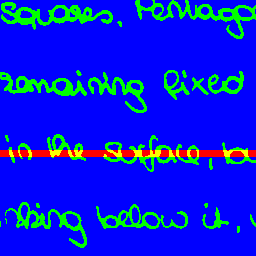 Squares, Pentago
remaining fixed
in the surface, bu
below it,